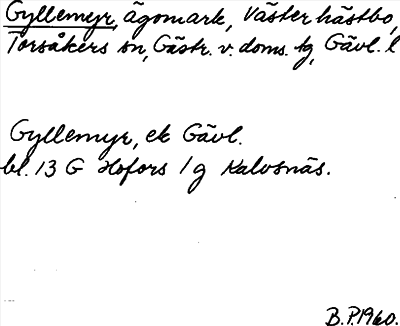 Gyllemyr, ägomark, Västerhästbo,
Torsåkers sn, Gästr. v. doms. tg, Gävl. l
Gyllemyr, ek Gävl.
bl. 13 G Hofors 1 g Kalvsnäs.
B.P. 1960.